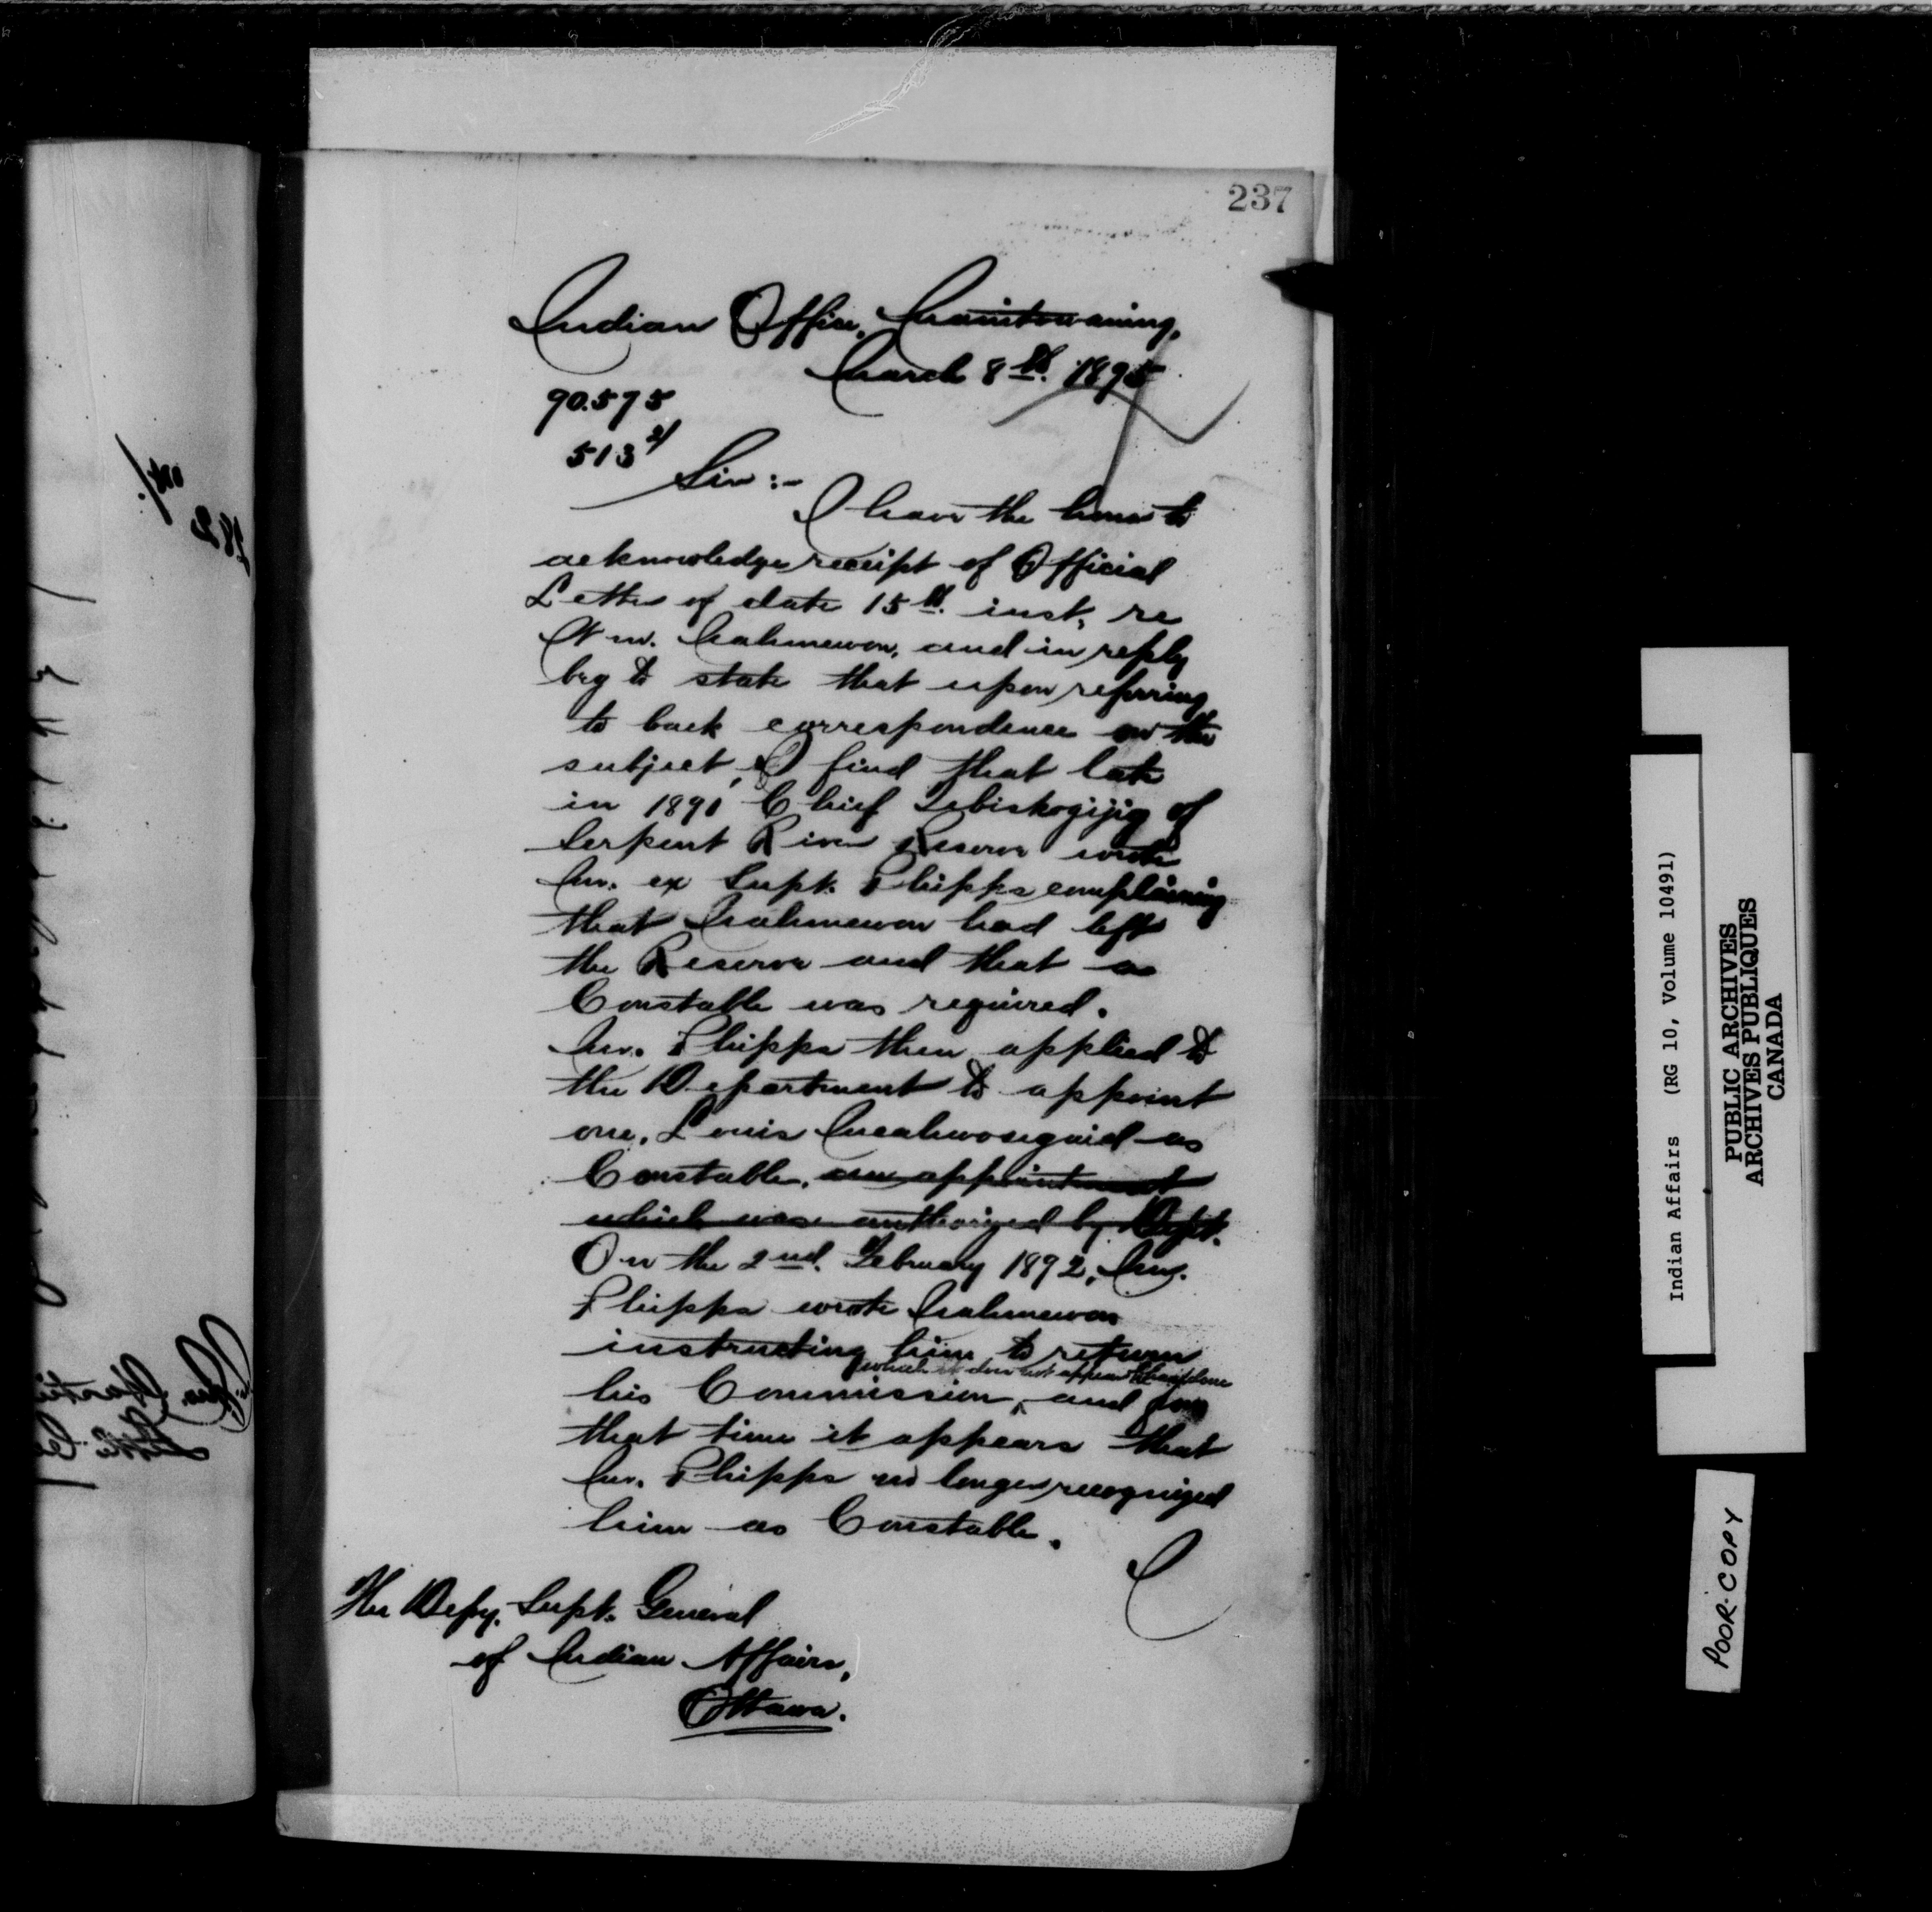 237
Indian Office, Manitowaning,
March 8th. 1895
90.575
513 21
Sir:-
I have the honor to
acknowledge receipt of Official
Letter of date 15th. inst, re
Wm. and in reply
beg to state that upon referring
to back correspondence on the
subject, I find that late
in 1891 Chief
of
Serpent River Reserve wrote
Mr. ex Supt. Phipps complaining
that had left
the Reserve and that a
Constable was required.
Mr. Phipps then applied to
the Department to appoint
one, Louis as
Constable, an appointment
which was authorized by Dept.
On the 2nd. February 1892, Mr.
Phipps wrote
instructing him to return
which it does not appear done
his Commission, and from
that time it appears that
Mr. Phipps no longer recognized
him as Constable.
The Depy. Supt. General
of Indian Affairs,
Ottawa.
Indian Affairs (RG 10, Volume 10491)
PUBLIC ARCHIVES
ARCHIVES PUBLIQUES
CANADA
POOR COPY